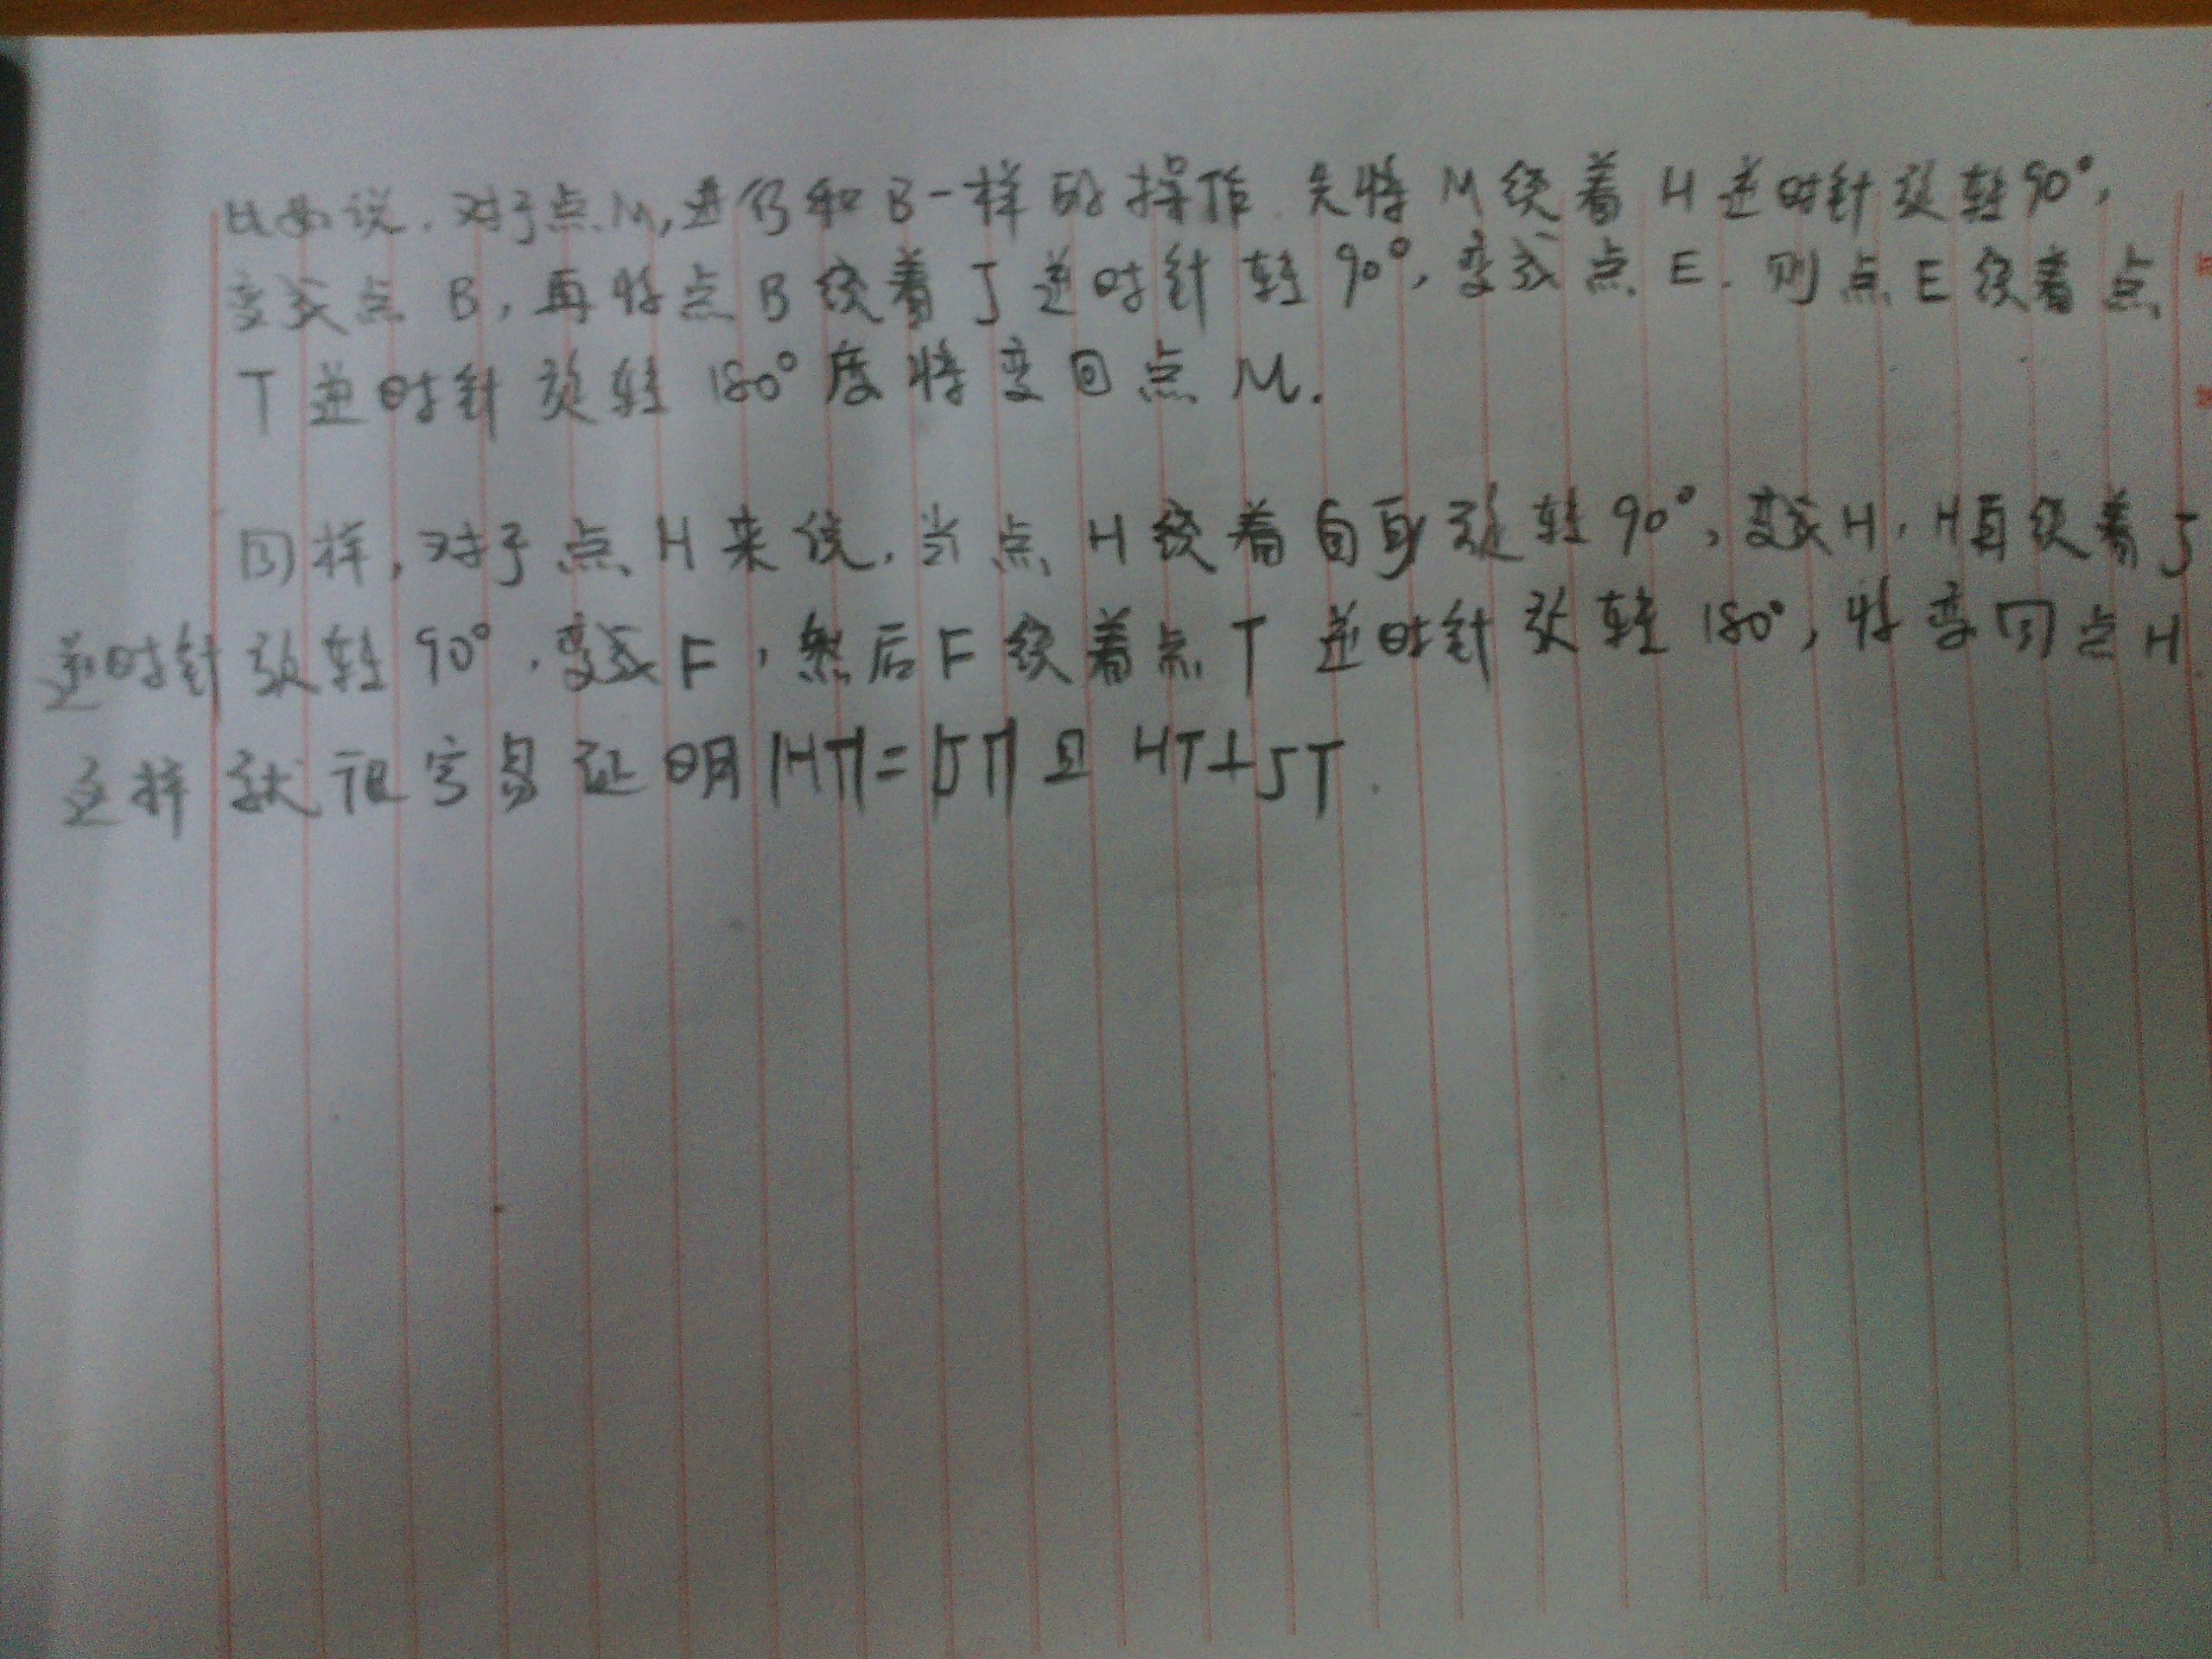 比如说,对于点M,进行和B一样的操作.先将M绕着H逆时针旋转90°,
变成点B,再将点B绕着J逆时针转90°,变成点E.则点E绕着点
T逆时针旋转180°度将变回点M.
同样,对于点H来说,当点H绕着自身旋转90°,变成H,H再绕着J
逆时针旋转90°,变成F,然后F绕着点T逆时针旋转180°,将变回点H
这样就很容易证明|HT|=|JT|且HT⊥JT.